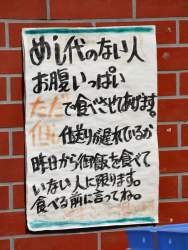 めし代のない人
お腹いっぱい
ただで食べさせてあげます。
但し仕送りが遅れているか
昨日から御飯を食べて
いない人に限ります。
食べる前に言ってね。